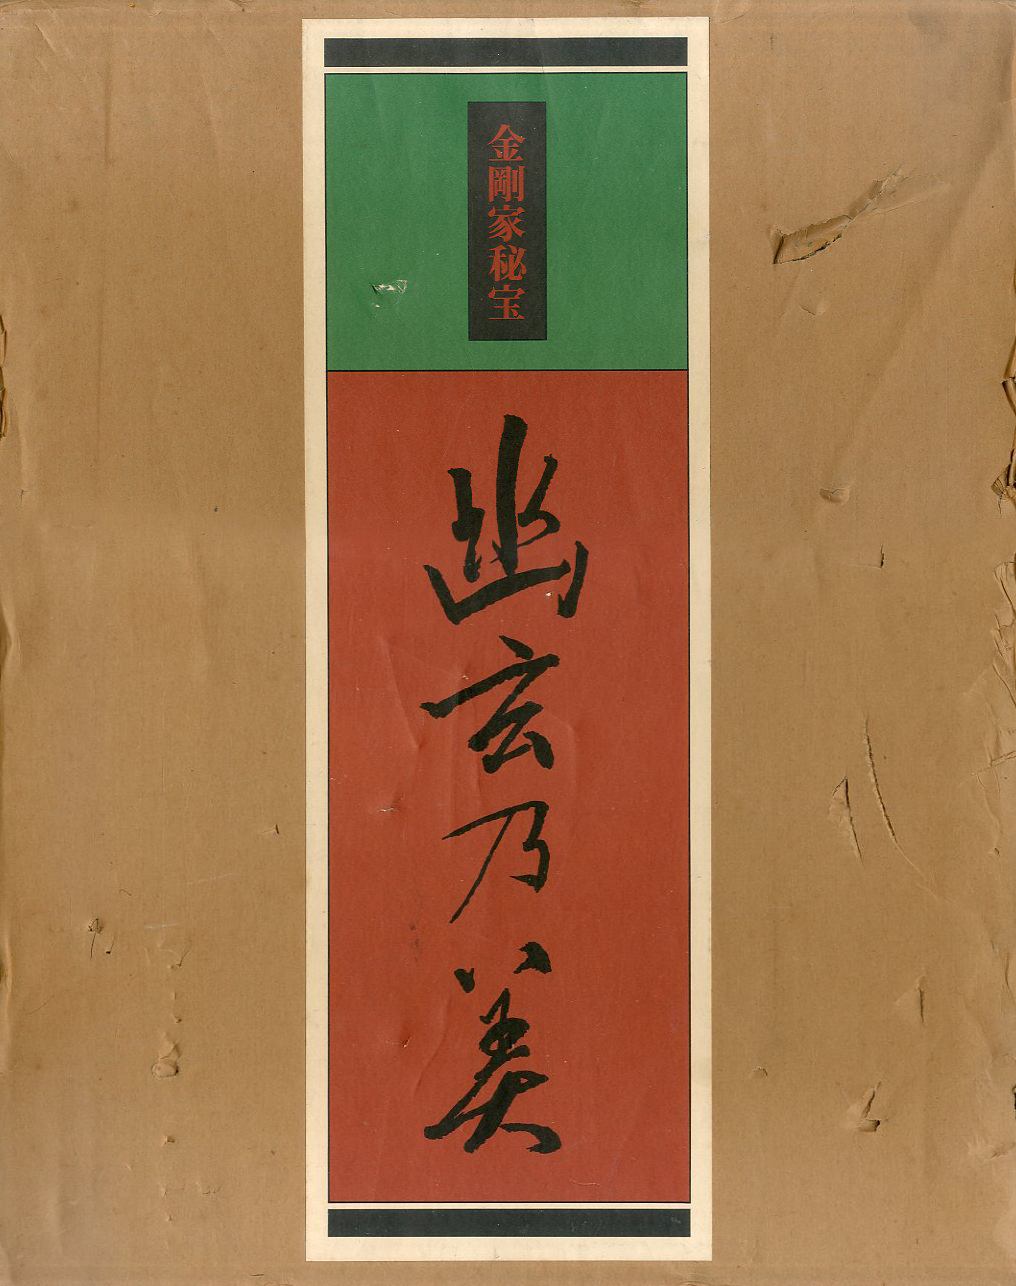 金剛家秘宝
幽玄乃美